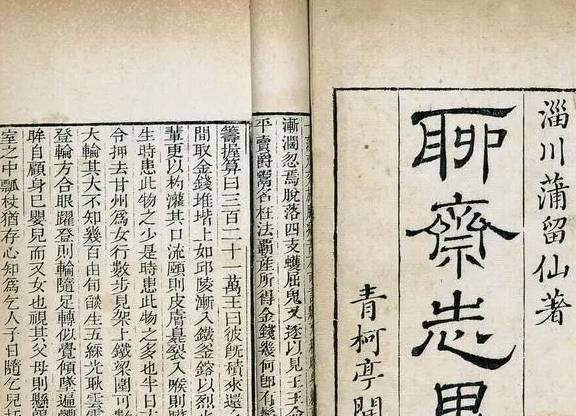 淄川蒲留仙著
聊齋志異
青柯亭開
漸瀾忽焉脫落四支蠖屈鬼又逐以見王王命
平賣爵鬻名枉法霸產所得金錢幾何卽有
籌握算曰三百二十一萬王曰彼旣積來還
間取金錢堆堦上如邱陵漸入鐵釜鎔以烈火
輩更以杓灌其口流頤則皮膚臭裂入喉則臟
生時患此物之少是時患此物之多也半日方
令押去甘州爲女行數步見架上鐵梁圍可數
大輪其大不知幾百由旬燄生五綵光耿雲
登輪方合眼躍登則輪隨足轉似覺傾墜遍體
眸自顧身已嬰兒而又女也視其父母則懸鶉
室之中瓢杖猶存心知爲乞人子日隨乞兒托